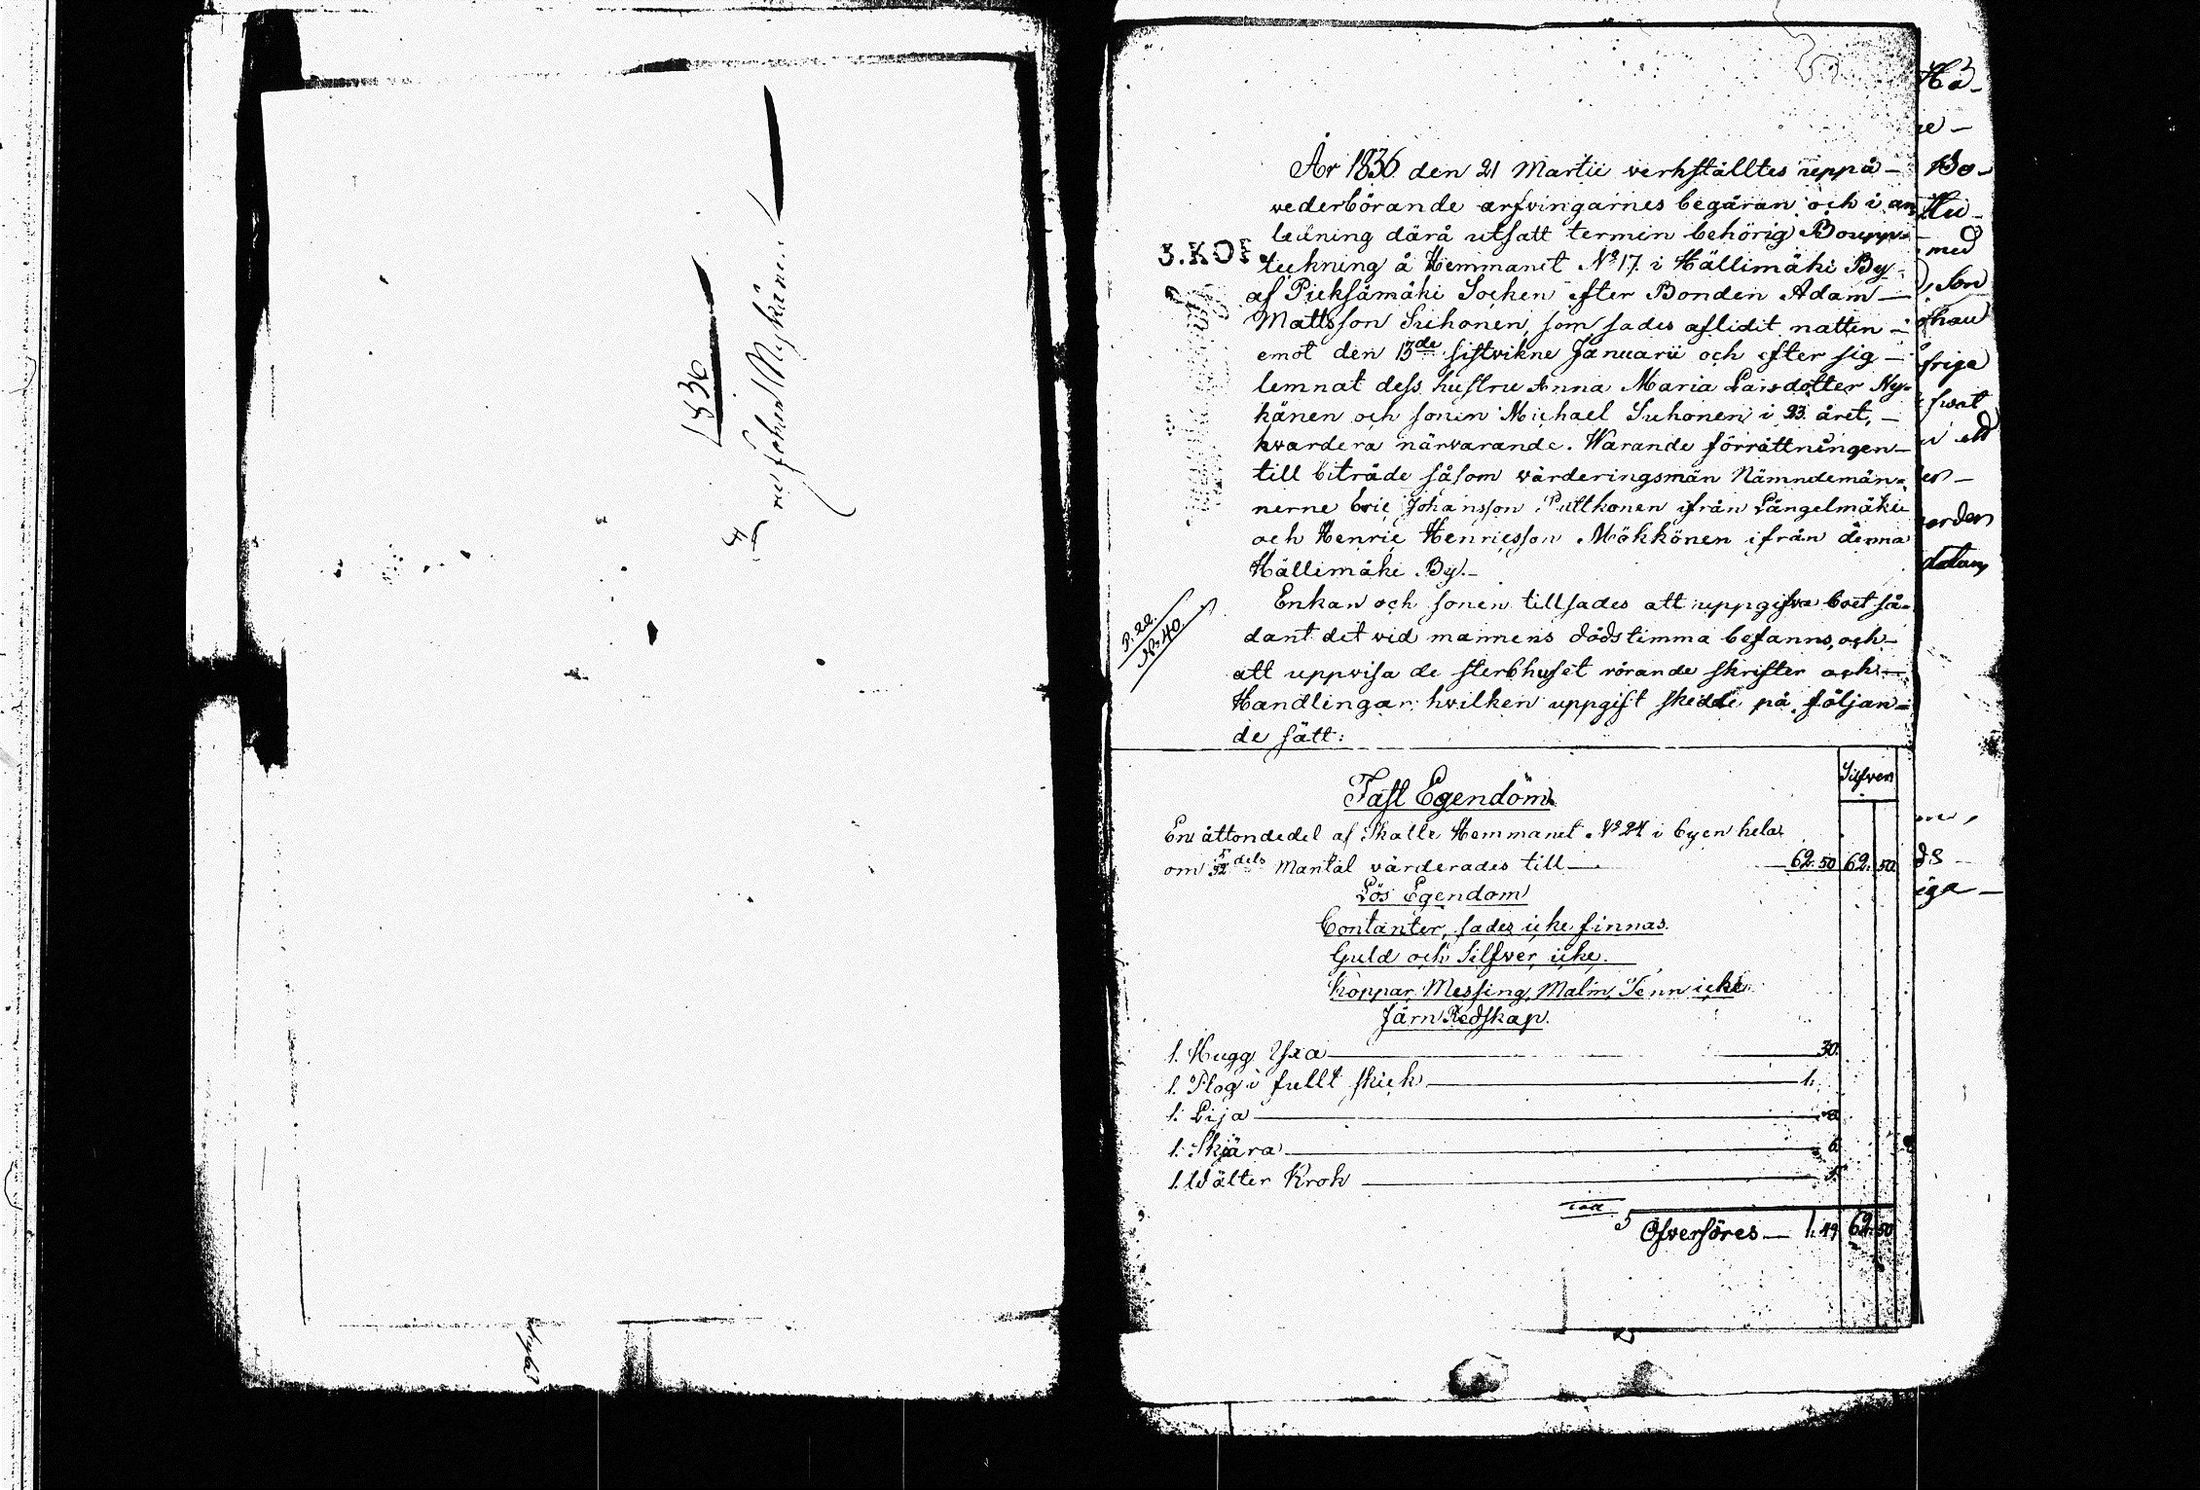 1836
År 1836 den 21 Martii verkställtes uppå
vederbörande arfvingarnes begäran och i an
ledning därå utsatt termin behörig Boupp-
3. KOP.
tekning å Hemmanet No 17. i Hällimäki By
af Pieksämäki Sochen efter Bonden Adam
Mattsson Suhonen, som sades aflidit natten
emot den 13de sistvikne Januarii och efter sig
lemnat dess hustru Anna Maria Larsdotter Ny-
känen och sonen Michael Suhonen i 23. året,
hvardera närvarande. Warande förrättningen
till biträde såsom värderingsmän Nämndemän-
nerne Eric Johansson Pulkonen ifrån Längelmäki
och Henric Henricsson Mökkönen ifrån denna
Hällimäki By.
Enkan och sonen tillsades att uppgifva boet så-
dant det vid mannens dödstimma befanns, och
att uppvisa de sterbhuset rörande skrifter och
Handlingar hvilken uppgift skedde på följan-
de sätt:
P. 22.
No 40.
Silfver
Fast Egendom.
En åttondedel af Skatte Hemmanet No 24 i byen hela
om dels Mantal värderades till 62.50 62. 50
Lös Egendom
Contanter, sades icke finnas.
Guld och Silfver icke.
Koppar, Messing, Malm, Tenn icke
Järn Redskap.
1. Hugg Yxa 30.
1. Plog i fullt skick 1.
1. Lija
1. Skjära 6
1. Wälter Krok 5.
Ofverföres 1.49 62. 50